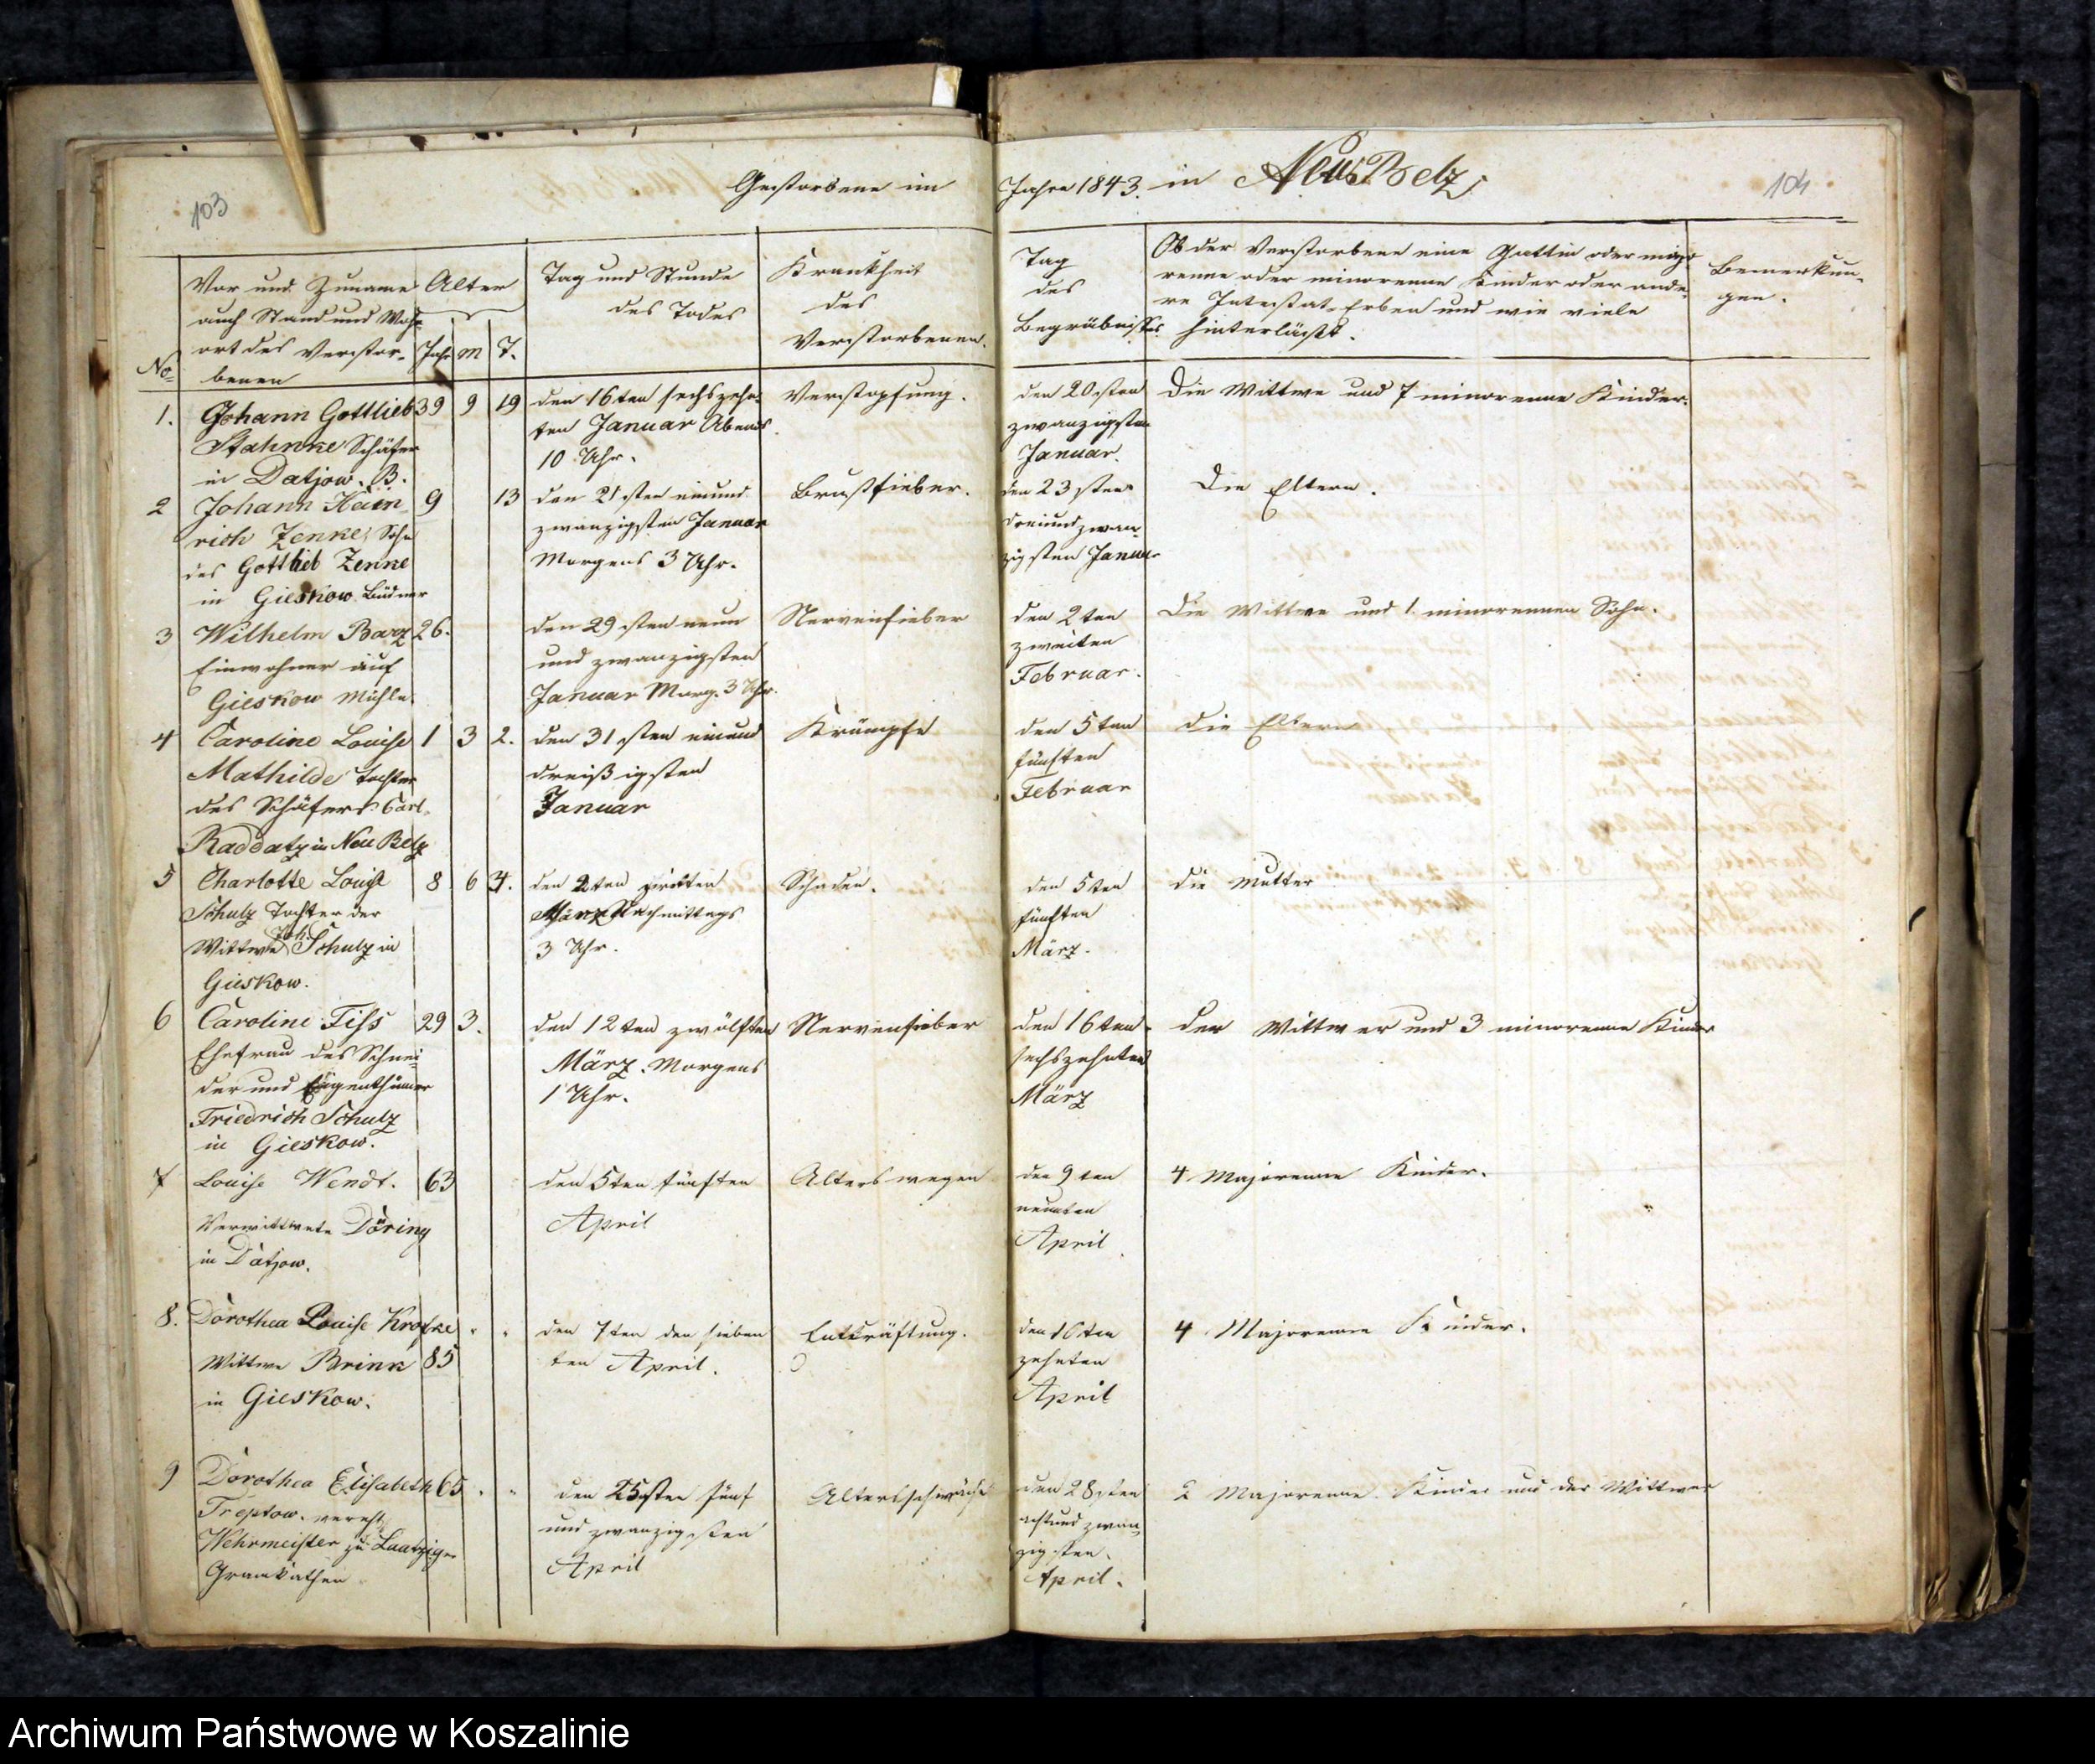 Gestorbene im Jahre 1843. in Neu Belz
103
104
No
Vor und Zuname
auch Stand und Wohn
ort des Verstor-
benen
Alter
Jahr M T.
Tag und Stunde
des Todes
Krankheit
des
Verstorbenen.
Tag
des
Begräbnisses.
Ob der Verstorbene eine Gattin oder majo
renne oder minorenne Kinder oder ande-
re Intestat-Erben und wie viele
hinterläßt.
Bemerkun-
gen.
1.
Johann Gottlieb
Stahnke Schäfer
in Datjow. B.
39 9 19
den 16ten sechszehn-
ten Januar Abends
10 Uhr.
Verstopfung.
den 20sten
zwanzigsten
Januar.
Die Wittwe und 7 minorenne Kinder.
2
Johann Hein
rich Zenke, Sohn
des Gottlieb Zenke
in Gieskow Büdner
9 13
den 21sten einund
zwanzigsten Januar
Morgens 3 Uhr.
Brustfieber.
den 23sten
dreiundzwan-
zigsten Januar
Die Eltern.
3
Wilhelm Barz
Einwohner auf
Gieskow Mühle.
26.
den 29sten neun
und zwanzigsten
Januar Morg. 3 Uhr.
Nervenfieber
den 2ten
zweiten
Februar.
Die Wittwe und 1 minorennen Sohn.
4
Caroline Louise
Mathilde Tochter
des Schäfers Carl
Raddatz in Neu Belz
1 3 2.
den 31sten einund
dreißigsten
Januar
Krämpfe
den 5ten
fünften
Februar
die Eltern
5
Charlotte Louise
Schulz Tochter der
Wittwe Schulz in
Gieskow.
8 6 4.
den 2ten zweiten
März Nachmittags
3 Uhr.
Schaden.
den 5ten
fünften
März.
die Mutter
6
Caroline Fiss
Ehefrau des Schnei-
der und Eigenthümer
Friedrich Schulz
in Gieskow.
29 3.
den 12ten zwölften
März. Morgens
1 Uhr.
Nervenfieber
den 16ten
sechszehnten
März
der Wittwer und 3 minorenne Kinder
7
Louise Wendt.
Verwittwete Döring
in Datjow.
63
den 5ten fünften
April
Alters wegen
den 9ten
neunten
April
4 Majorenne Kinder.
8.
Dorothea Louise
Wittwe Brink
in Gieskow.
85
den 7ten den sieben
ten April.
Entkräftung.
den 10ten
zehnten
April
4 Majorenne Kinder.
9
Dorothea Elisabeth
Treptow. vereht.
Wehrmeister zu Laatziger
65
den 25sten fünf
und zwanzigsten
April
Altersschwäche
den 28sten
achtund zwan
zigsten.
April.
2 Majorenne Kinder und der Wittwer
Archiwum Państwowe w Koszalinie